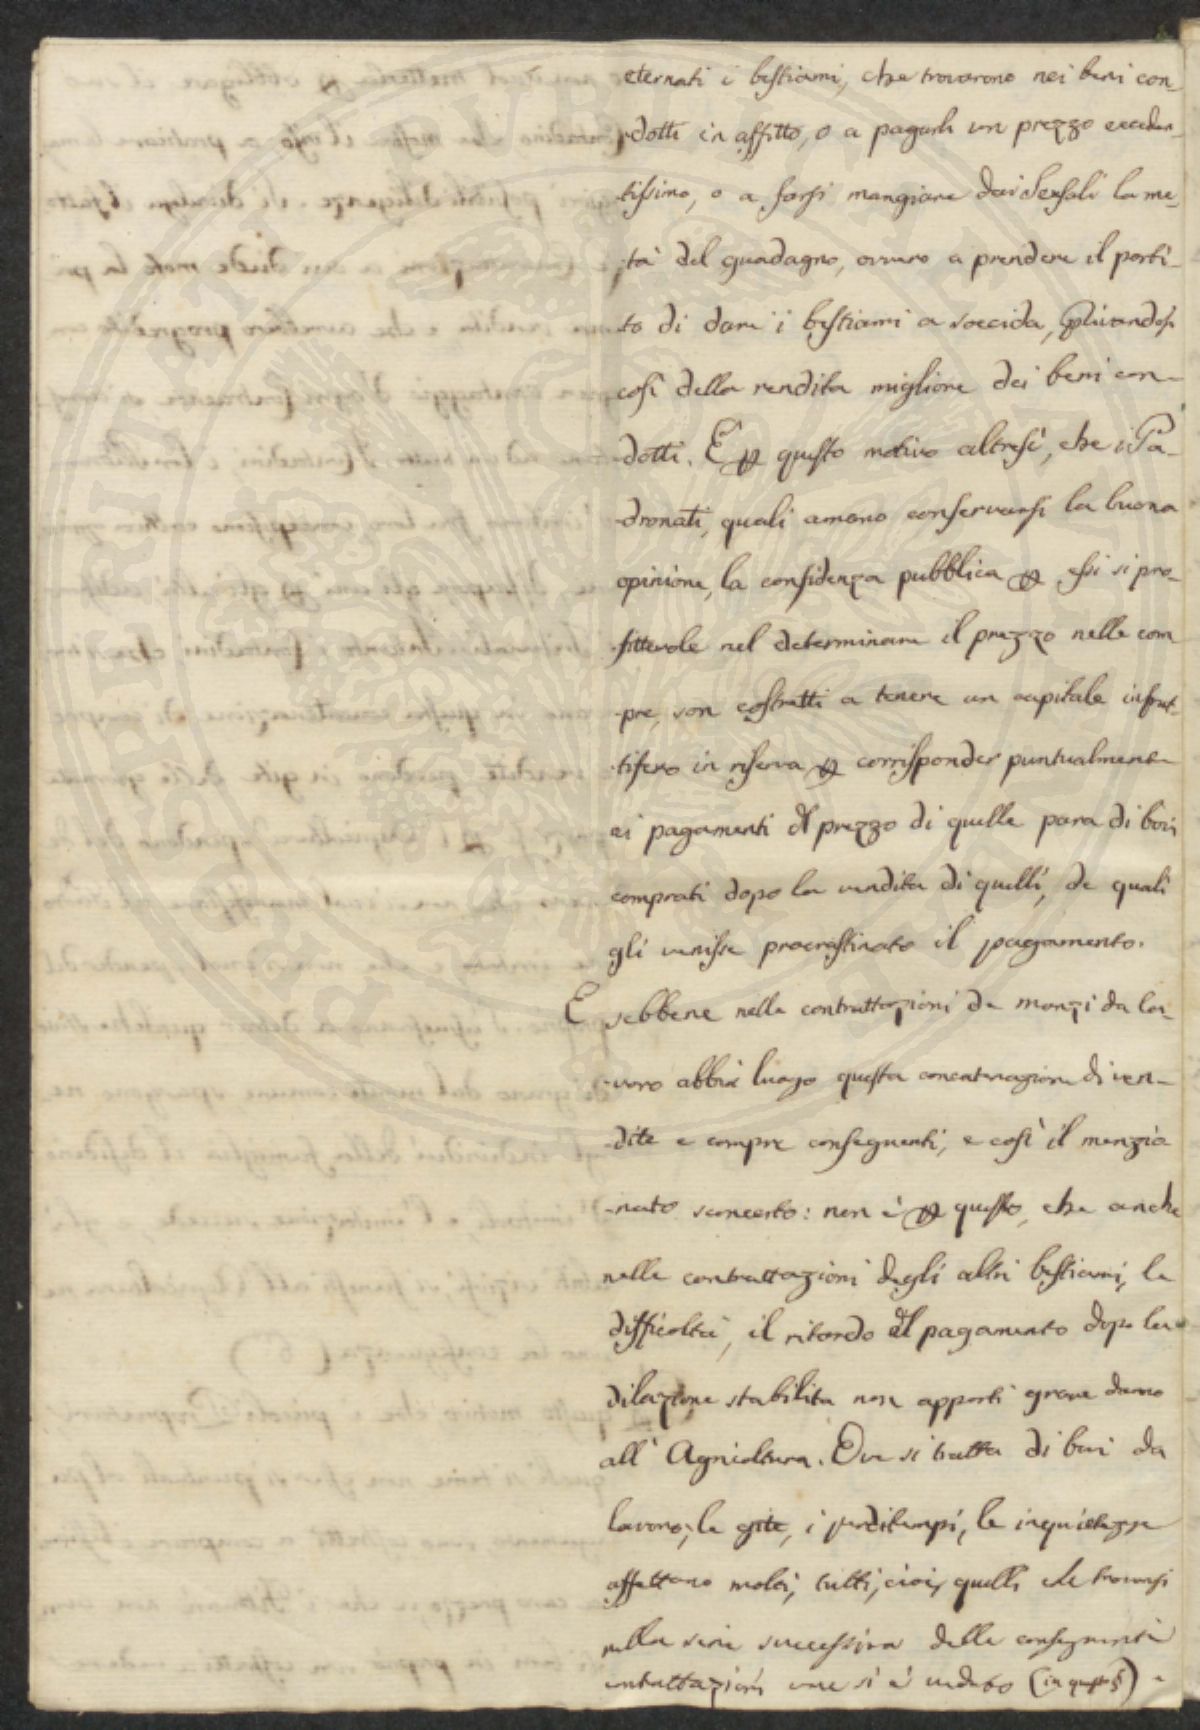 eternati i bestiami, che trovarono nei beni con-
-dotti in affitto, o a pagarli un prezzo ecceden-
-tissimo, o a farsi mangiare dai Sensali la me-
-tà del guadagno, ovvero a prendere il parti-
-to di dare i bestiami a soccida, privandosi
così della rendita migliore dei beni con-
-dotti. È p questo motivo altresì, che i Pa-
-dronati, quali amano conservarsi la buona
opinione, la confidenza pubblica p essi sì pro-
-fittevole nel determinare il prezzo nelle com
-pre, son costretti a tenere un capitale infrut-
-tifero in riserva p corrisponder puntualmente
ai pagamenti del prezzo di quelle para di bovi
comprati dopo la vendita di quelli, de quali
gli venisse procrastinato il pagamento.
E sebbene nelle contrattazioni de manzi da la-
-voro abbia luogo questa concatenazione di ven-
-dite e compre conseguenti, e così il menzio
-nato sconcerto: non è p questo, che anche
nelle contrattazioni degli altri bestiami, la
difficoltà, il ritardo del pagamento dopo la
dilazione stabilita non apporti grave danno
all' Agricoltura. Ove si tratta di bovi da
lavoro, le gite, i perditempi, le inquietezze
affettano molti, tutti, cioè, quelli che trovansi
nella serie successiva delle conseguenti
contrattazioni come si è veduto (in questo §)
PUBLIC